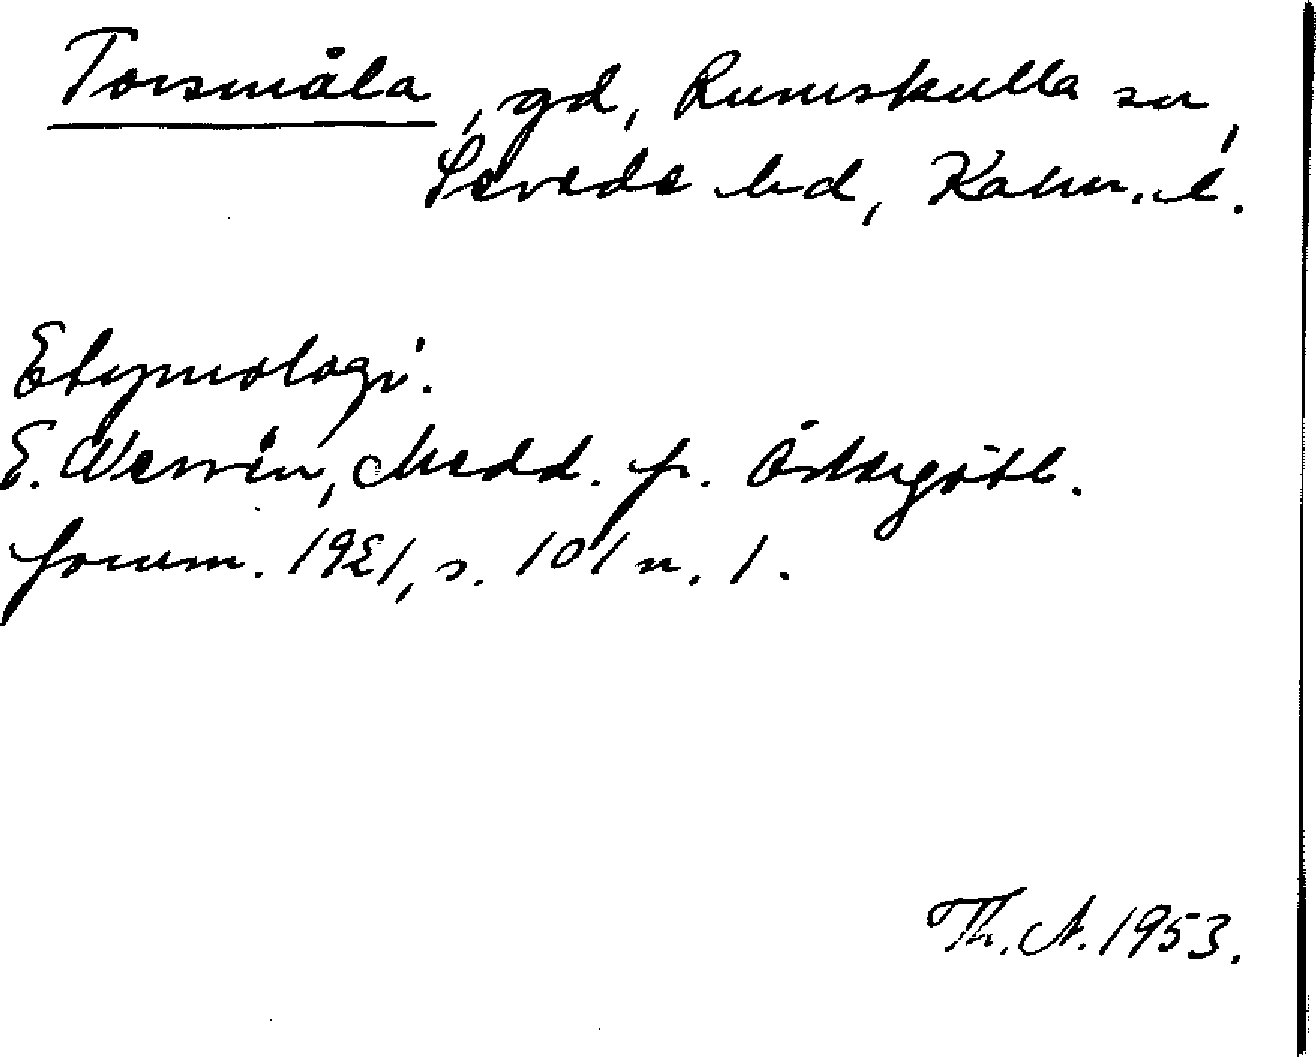 Torsmåla, gd, Rumskulla sn,
Sevede hd, Kalm. l.
Etymologi.
E. Wessén, Medd. fr. Östergötl.
fornm. 1921, s. 101 n. 1.
Th. A. 1953.